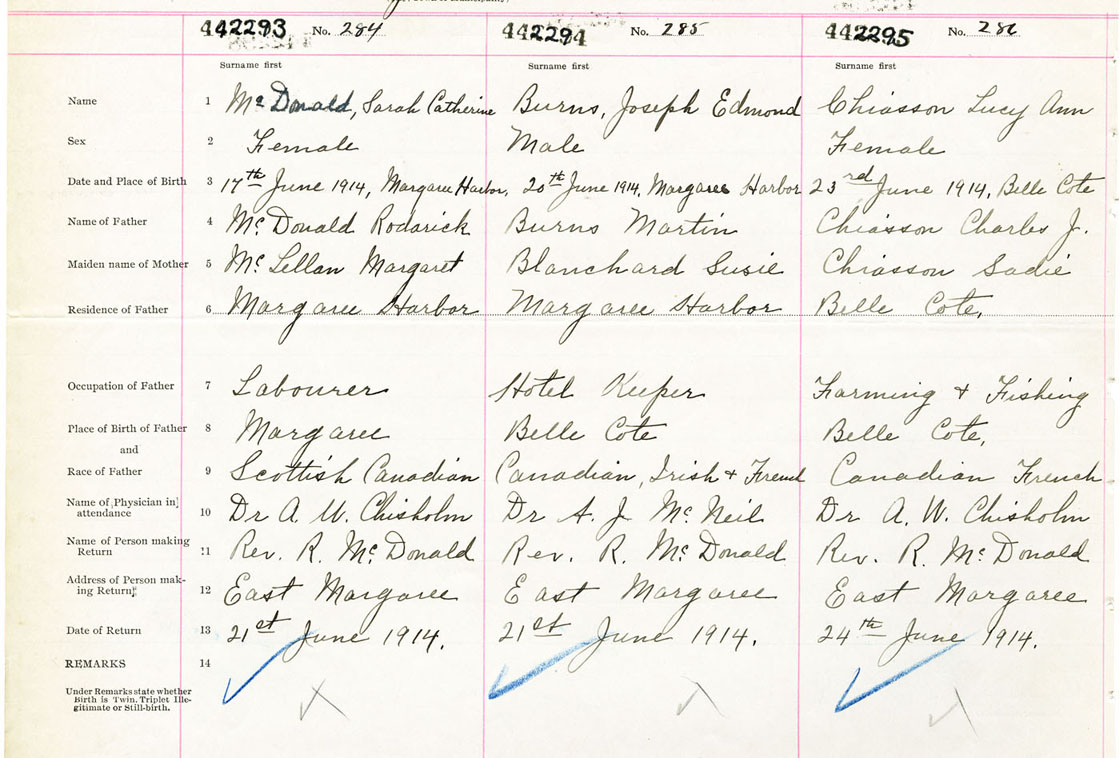 442293 No. 284 442294 No. 285 442295 No. 286
Surname first Surname first Surname first
Name 1 Mc Donald, Sarah Catherine Burns, Joseph Edmond Chiasson Lucy Ann
Sex 2 Female Male Female
Date and Place of Birth 3 17th June 1914, Margaree Harbor, 20th June 1914, Margaree Harbor 23rd June 1914, Belle Cote
Name of Father 4 Mc Donald Rodarick Burns Martin Chiasson Charles J.
Maiden name of Mother 5 Mc Lellan Margaret Blanchard Susie Chiasson Sadie
Residence of Father 6 Margaree Harbor Margaree Harbor Belle Cote,
Occupation of Father 7 Labourer Hotel Keeper Farming & Fishing
Place of Birth of Father 8 Margaree Belle Cote Belle Cote,
and
Race of Father 9 Scottish Canadian Canadian, Irish & French Canadian French
Name of Physician in
attendance 10 Dr A. W. Chisholm Dr A. J. Mc Neil Dr A. W. Chisholm
Name of Person making
Return 11 Rev. R. Mc Donald Rev. R. Mc Donald Rev. R. Mc Donald
Address of Person mak-
ing Return 12 East Margaree East Margaree East Margaree
Date of Return 13 21st June 1914. 21st June 1914. 24th June 1914.
REMARKS 14
Under Remarks state whether
Birth is Twin, Triplet Ille-
gitimate or Still-birth.